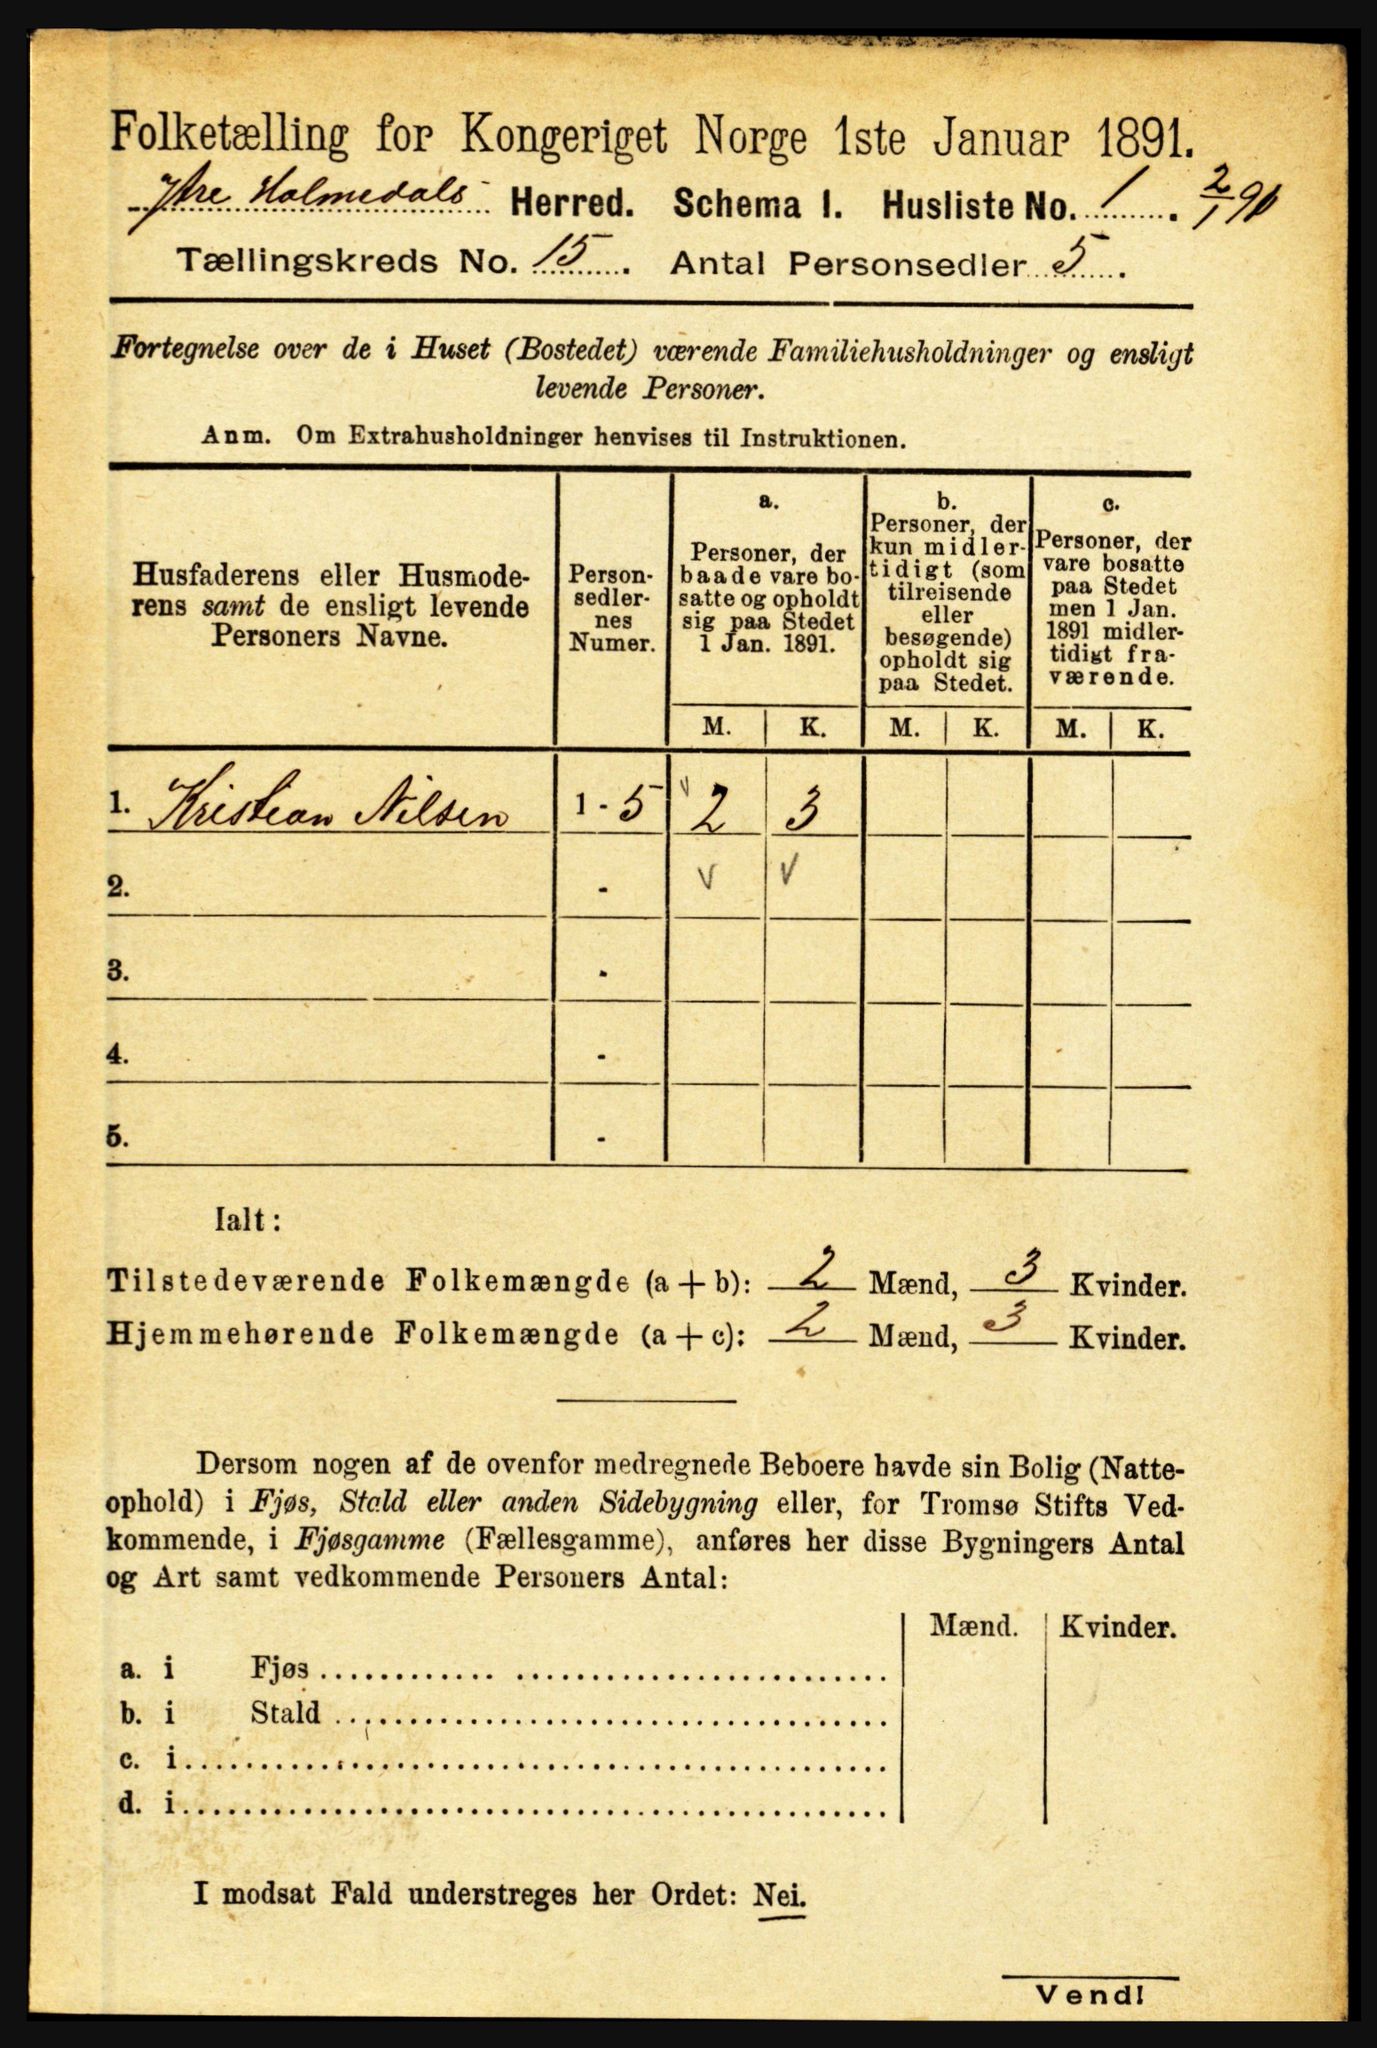 Folketælling for Kongeriget Norge 1ste Januar 1891.
Ytre Holmedals Herred. Schema I. Husliste No. 1. 2/1 91
Tællingskreds No. 15. Antal Personsedler 5.
Fortegnelse over de i Huset (Bostedet) værende Familiehusholdninger og ensligt
levende Personer.
Anm. Om Extrahusholdninger henvises til Instruktionen.
Husfaderens eller Husmode-
rens samt de ensligt levende
Personers Navne.
Person-
sedler-
nes
Numer.
a.
Personer, der
baade vare bo-
satte og opholdt
sig paa Stedet
1 Jan. 1891.
b.
Personer, der
kun midler-
tidigt (som
tilreisende
eller
besøgende)
opholdt sig
paa Stedet.
c.
Personer, der
vare bosatte
paa Stedet
men 1 Jan.
1891 midler-
tidigt fra-
værende.
M. K. M. K. M. K.
1. Kristian Nilsen 1 - 5 v 2 3
2. - v v
3. -
4. -
5. -
Ialt:
Tilstedeværende Folkemængde (a + b): 2 Mænd, 3 Kvinder.
Hjemmehørende Folkemængde (a + c): 2 Mænd, 3 Kvinder.
Dersom nogen af de ovenfor medregnede Beboere havde sin Bolig (Natte-
ophold) i Fjøs, Stald eller anden Sidebygning eller, for Tromsø Stifts Ved-
kommende, i Fjøsgamme (Fællesgamme), anføres her disse Bygningers Antal
og Art samt vedkommende Personers Antal:
Mænd. Kvinder.
a. i Fjøs
b. i Stald
c. i
d. i
I modsat Fald understreges her Ordet: Nei.
Vend!